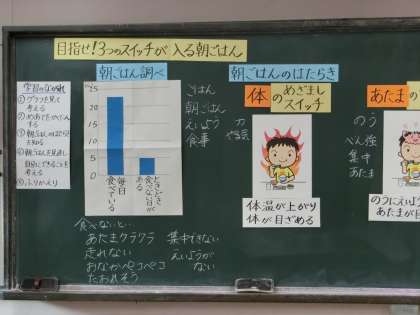 目指せ!3つのスイッチが入る朝ごはん
学習のながれ
①グラフを見て
考える
②めあてをかくにん
する
③朝ごはんのはたらき
を知る
④朝ごはんを見直し
自分にできることを
考える
⑤ふりかえり
朝ごはん調べ
25
20
15
10
5
0
毎日
食べている
ときどき
食べない日が
ある
ごはん
朝ごはん
えいよう
食事
力
やる気
朝ごはんのはたらき
体のめざまし
スイッチ
体温が上がり
体が目ざめる
あたまの
のう
べん強
集中
あたま
のうにえいよ
あたまが目
食べないと…
あたまクラクラ
走れない
おなかペコペコ
たおれそう
集中できない
えいようが
ない